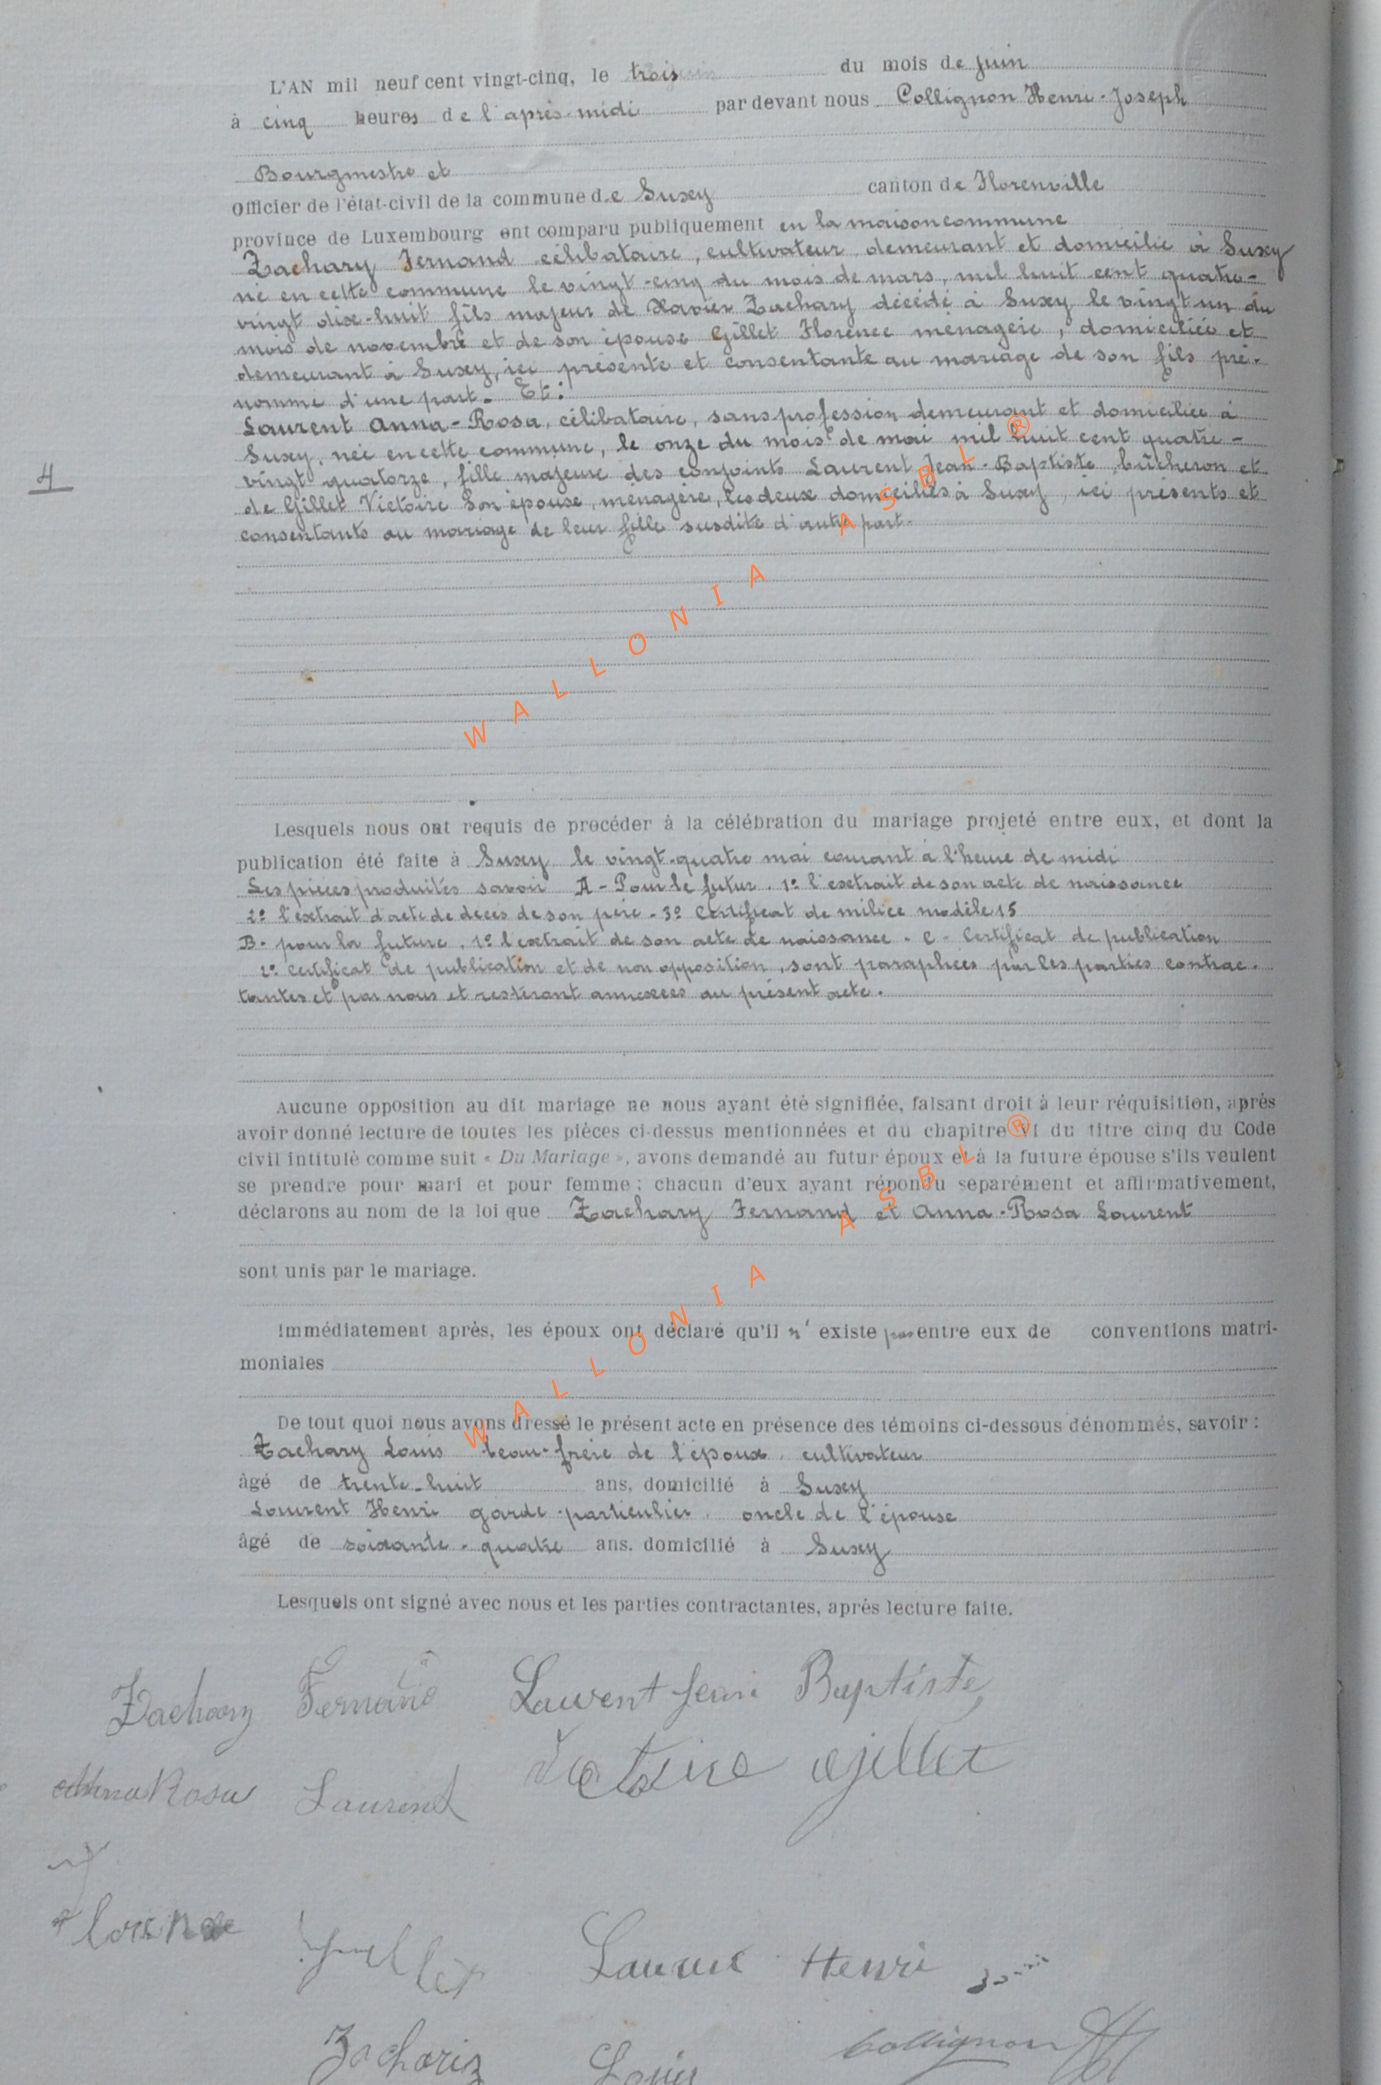 L'AN mil neuf cent vingt-cinq, le trois du mois de juin
à cinq heures de l'après-midi par devant nous Collignon Henri-Joseph
Bourgmestre et
Officier de l'état-civil de la commune de Suxy canton de Florenville
province de Luxembourg ont comparu publiquement en la maison commune
Zachary Fernand célibataire, cultivateur, demeurant et domicilié à Suxy
né en cette commune le vingt-cinq du mois de mars, mil huit cent quatre-
vingt dix-huit fils majeur de Xavier Zachary décédé à Suxy le vingt un du
mois de novembre et de son épouse Gillet Florence ménagère, domiciliée et
demeurant à Suxy, ici présente et consentante au mariage de son fils pré-
nommé d'une part. Et:
Laurent Anna-Rosa, célibataire, sans profession demeurant et domiciliée à
Suxy, née en cette commune, le onze du mois de mai mil huit cent quatre-
vingt quatorze, fille majeure des conjoints Laurent Jean-Baptiste bûcheron et
de Gillet Victoire son épouse, ménagère, les deux domiciliés à Suxy, ici présents et
consentants au mariage de leur fille susdite d'autre part.
4
WALLONIA ASBL ®
Lesquels nous ont requis de procéder à la célébration du mariage projeté entre eux, et dont la
publication été faite à Suxy le vingt-quatre mai courant à l'heure de midi
Les pièces produites savoir A - Pour le futur. 1º l'extrait de son acte de naissance
2º l'extrait d'acte de décès de son père - 3º Certificat de milice modèle 15
B- pour la future, 1º l'extrait de son acte de naissance. C- Certificat de publication
2º Certificat de publication et de non opposition, sont paraphées par les parties contrac-
tantes et par nous et resteront annexées au présent acte.
Aucune opposition au dit mariage ne nous ayant été signifiée, faisant droit à leur réquisition, après
avoir donné lecture de toutes les pièces ci-dessus mentionnées et du chapitre VI du titre cinq du Code
civil intitulé comme suit « Du Mariage », avons demandé au futur époux et à la future épouse s'ils veulent
se prendre pour mari et pour femme ; chacun d'eux ayant répondu séparément et affirmativement,
déclarons au nom de la loi que Zachary Fernand et Anna-Rosa Laurent
sont unis par le mariage.
WALLONIA ASBL ®
Immédiatement après, les époux ont déclaré qu'il n' existe pas entre eux de conventions matri-
moniales
De tout quoi nous avons dressé le présent acte en présence des témoins ci-dessous dénommés, savoir :
Zachary Louis beau-frère de l'époux, cultivateur
âgé de trente-huit ans, domicilié à Suxy
Laurent Henri garde-particulier, oncle de l'épouse
âgé de soixante-quatre ans. domicilié à Suxy
Lesquels ont signé avec nous et les parties contractantes, après lecture faite.
Zachary Fernand Laurent Jean Baptiste
Anna Rosa Laurent Victoire Gillet
Florence Gillet Laurent Henri
Zachary Louis Collignon HJ